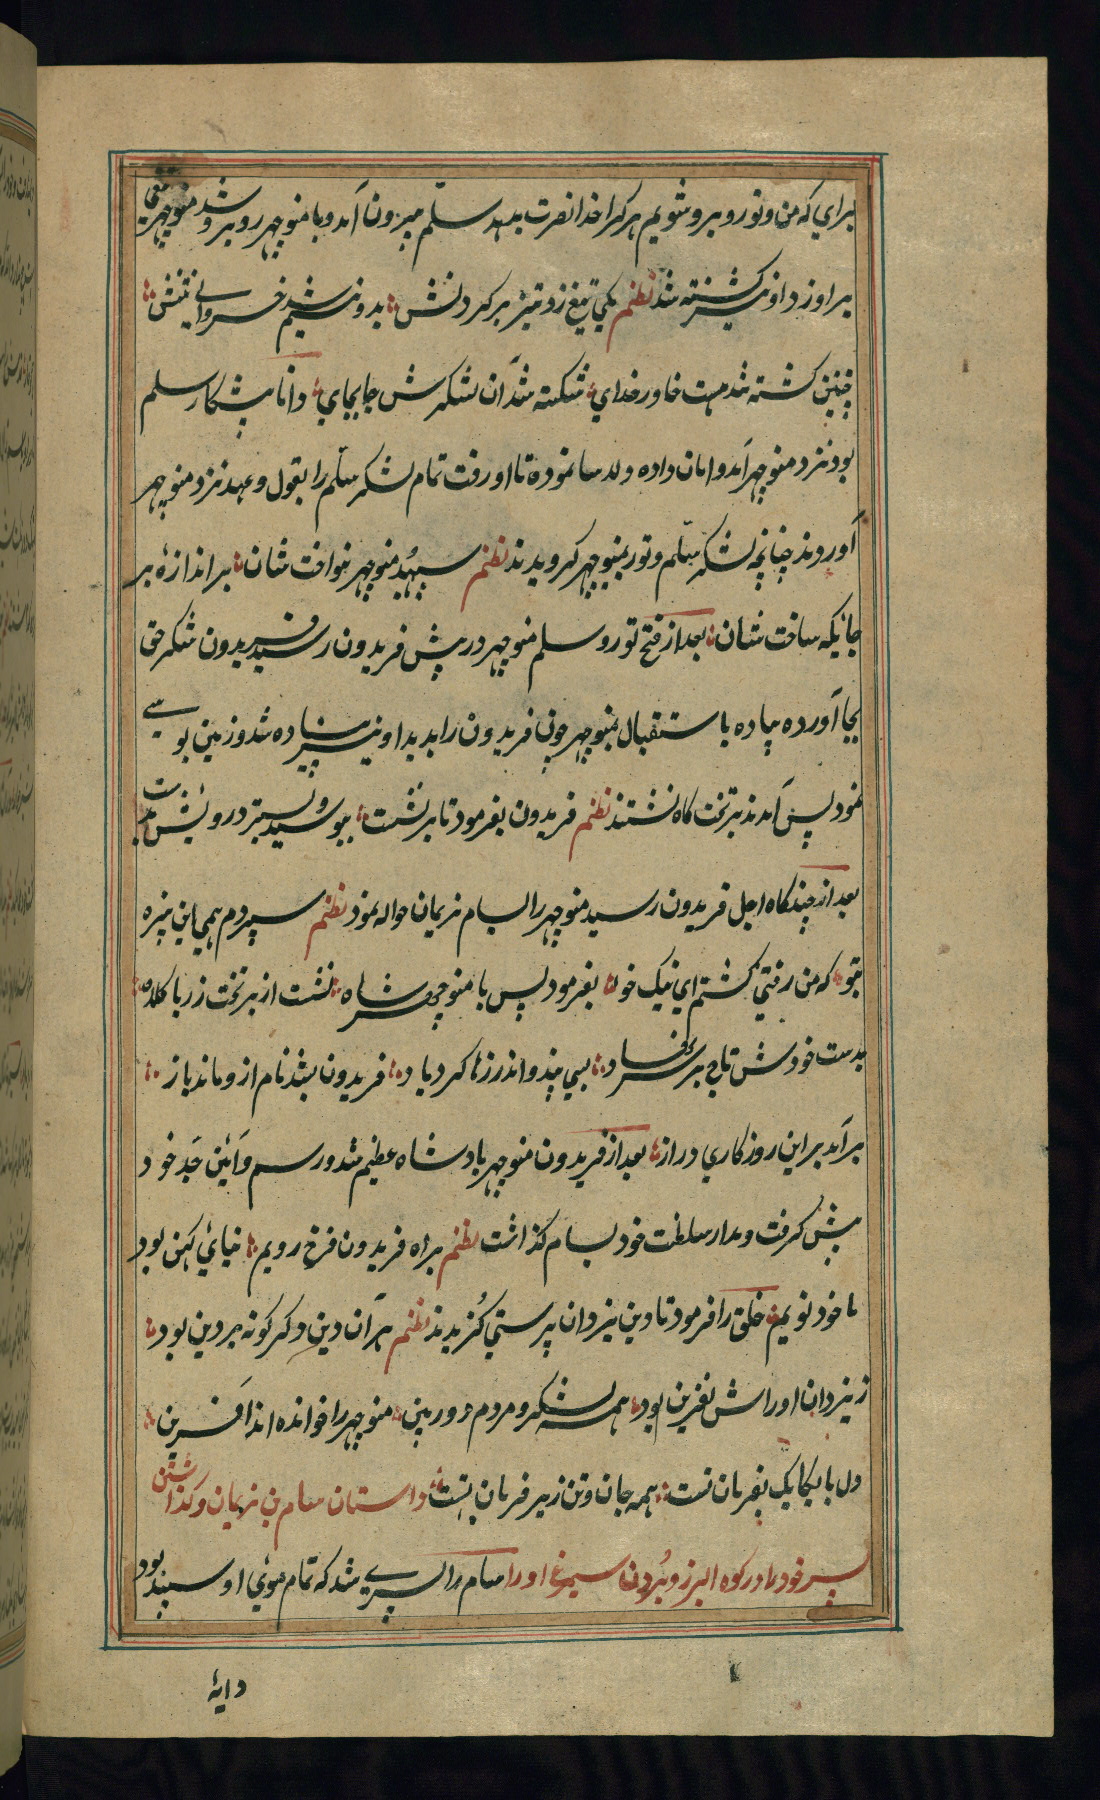 برای که من و تو روبرو شویم هر کرا خدا نصرت بدهد سلّم بیرون آمد و با منوچهر روبرو شد منوچهر تیغی
بر او زد او نیز کشته شد نظم یکی تیغ زد تیز بر کردنش بدو نیم شد خسروانی تنش
چنین کشته شد مهت خاور خدای شکسته شد آن لشکرش جابجای دانا پیشکار سلم
بود نزد منوچهر آمد و امان داده ولدسا نموده تا او رفت تمام لشکر سلّم را بقول و عهد نزد منوچهر
آوردند چنانچه لشکر سلّم و تور بمنوچهر کرویدند نظم سپهبد منوچهر بنواخت شان بر اندازهٔ بر
جایکه ساخت شان بعد از فتح تور و سلم منوچهر در پیش فریدون رسید فریدون شکر حق
بجا آورده پیاده با ستقبال منوچهر چون فریدون را بدید او نیز پیاده شد و زمین بوسی
نمود پس آمدند بر تخت کاه نشتند نظم فریدون بفرمود تا بر نشت ببوسید و بستر د رویش بدست
بعد از چند کاه اجل فریدون رسید منوچهر را بسام نریمان حواله نمود نظم سپردم همی این نبیره
بتو که من رفتنی کشتم ای نیک خو بفرمود پس با منوچهر شاه نشت از بر تخت زر با کلاه
بدست خودش تاج بر سر نهاد بسی پند و اندرزها کرد یاد فریدون بشد نام از و ماند باز
برآمد بر این روزکاری دراز بعد از فریدون منوچهر بادشاه عظیم شد و رسم و آئین جد خود
پیش کرفت و مدار سلطنت خود بسام کذاشت نظم براه فریدون فرخ رویم نیائی کهن بود
ما خود نویم خلق را فرمود تا دین یزدان پرستی کزیدند نظم هر آن دین و کر کونه بر دین بود
ز یزدان اوراش نفرین بود همه لشکر و مردم دوربین منوچهر را خوانده اند آفرین
دل با یکایک بفرمان تست همه جان و تن زیر فرمان تست داستان سام بن نریمان و کذاشتن
پسر خود را در کوه البرز و بُردن سیمرغ او را سام را پسری شد که تمام موئی او سپید بود
دایهٔ